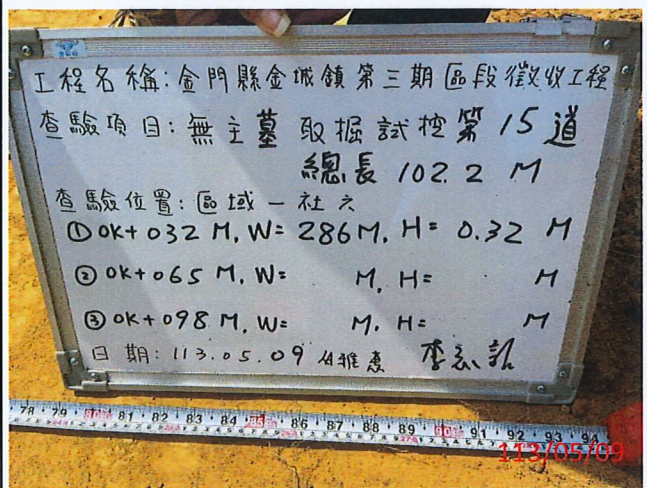 工程名稱:金門縣金城鎮第三期區段徵收工程
查驗項目:無主墓 取掘試挖第15道
總長 102.2 M
查驗位置:區域一社六
①0K+032 M, W= 286M, H= 0.32 M
②0K+065 M, W= M, H= M
③0K+098 M, W= M, H= M
日期:113.05.09 李
78 79 80 81 82 83 84 85 86 87 88 89 90 91 92 93 94
113/05/09